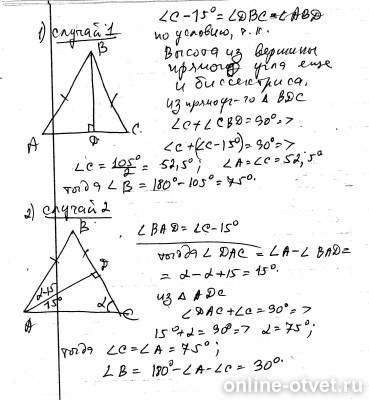 1) случай 1
B
A
D
C
∠C-15°=∠DBC=∠ABD
по условию, т.к.
Высота из вершины
прямого угла еще
и биссектриса,
из прямоуг-го Δ BDC
∠C+∠CBD=90°=>
∠C+(∠C-15°)=90°=>
∠C=105°/2=52,5°, ∠A=∠C=52,5°
тогда ∠B=180°-105°=75°.
2) случай 2
B
D
A
C
α-15
15°
α
∠BAD=∠C-15°
тогда ∠DAC=∠A-∠BAD=
=α-α+15=15°.
из Δ ADC
∠DAC+∠C=90°=>
15°+α=90°=> α=75°;
тогда ∠C=∠A=75°;
∠B=180°-∠A-∠C=30°.
online-otvet.ru